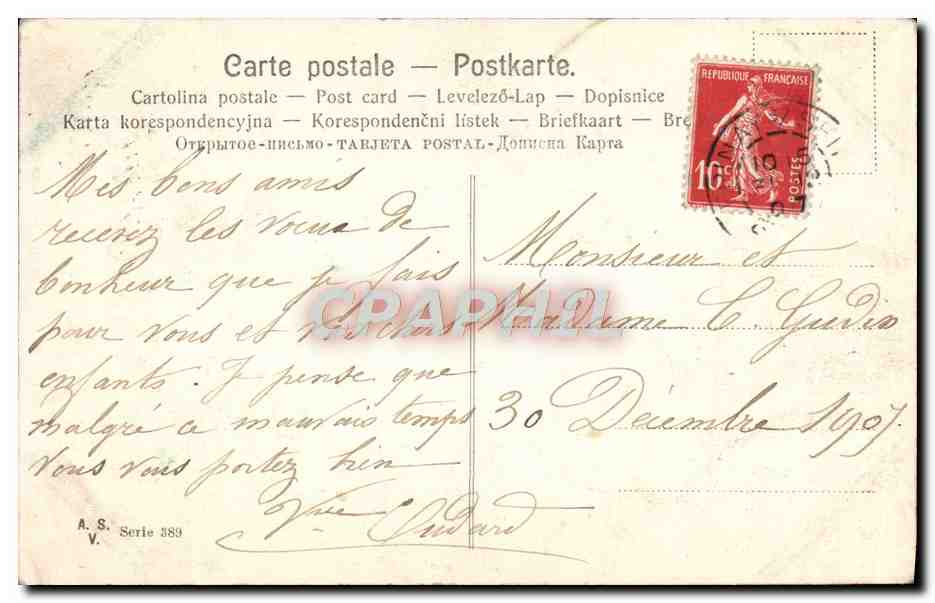 Carte postale — Postkarte.
Cartolina postale — Post card — Levelező-Lap — Dopisnice
Karta korespondencyjna — Korespondenční lístek — Briefkaart — Bre
Открытое-письмо-TARJETA POSTAL-Дописна Карта
REPUBLIQUE FRANÇAISE
10c
POSTES
Mes bons amis
recevez les voeux de
bonheur que je fais
pour vous et vos chers
enfants. Je pense que
malgré ce mauvais temps
vous vous portez bien
Vve Oudard
Monsieur et
Madame C. Gudin
30 Décembre 1907.
CPAPHIL
A. S.
V.
Serie 389